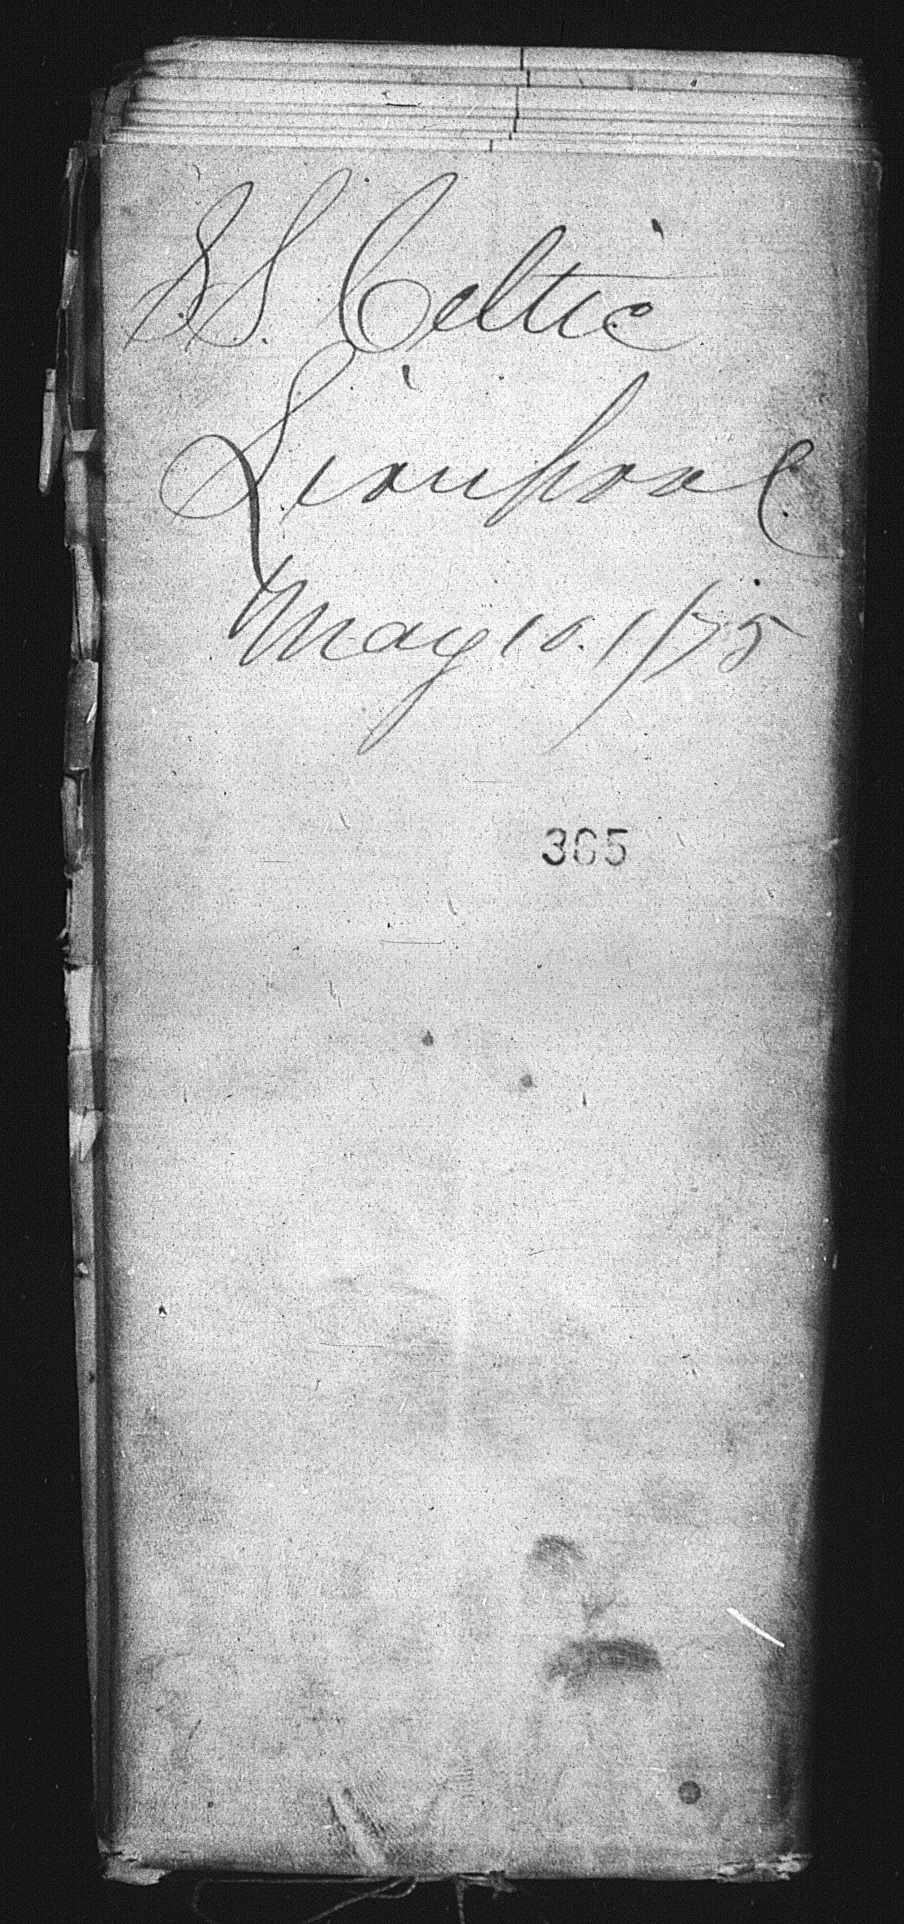 SS. Celtic
Liverpool
May 10. 1/75
365